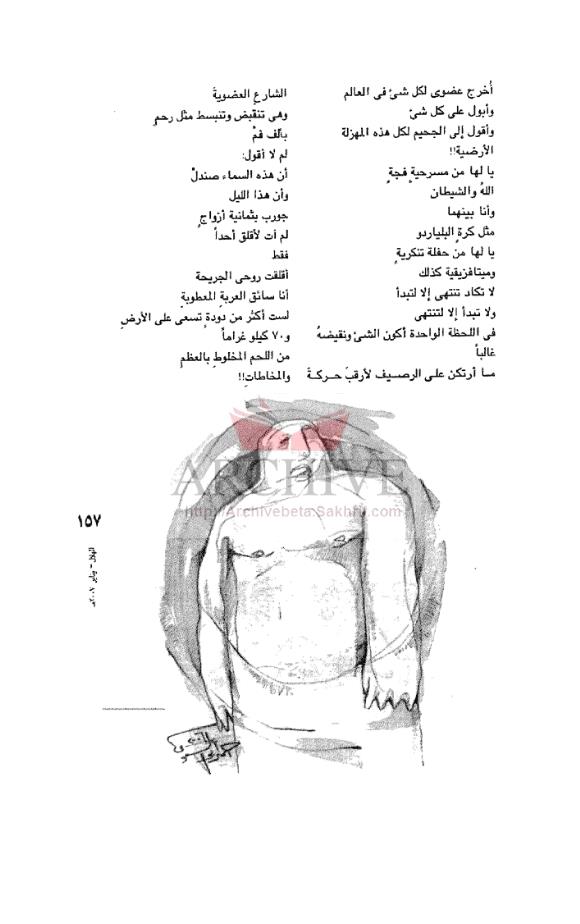 أُخرج عضوى لكل شئ فى العالم
وأبول على كل شئ
وأقول إلى الجحيم لكل هذه المهزلة
الأرضية!!
يا لها من مسرحيةٍ فجةٍ
اللهُ والشيطان
وأنا بينهما
مثل كرةِ البلياردو
يا لها من حفلة تنكريةٍ
وميتافزيقية كذلك
لا تكاد تنتهى إلا لتبدأ
ولا تبدأ إلا لتنتهى
فى اللحظة الواحدة أكون الشئ ونقيضهُ
غالباً
مـا أرتكن على الرصـيف لأرقبَ حـركـةَ
الشارع العضويةَ
وهى تنقبض وتنبسط مثل رحمٍ
بألف فمْ
لم لا أقول:
أن هذه السماء صندلٌ
وأن هذا الليل
جورب بثمانية أزواجٍ
لم آت لأقلق أحداً
فقط
أقلقت روحى الجريحة
أنا سائق العربةِ المعطوبةِ
لست أكثر من دودةٍ تسعى على الأرضِ
و٧٠ كيلو غراماً
من اللحم المخلوطِ بالعظم
والمخاطاتِ!!
ARCHIVE
http://Archivebeta.Sakhrit.com
١٥٧
الهلال - يناير ٢٠٠٧مـ